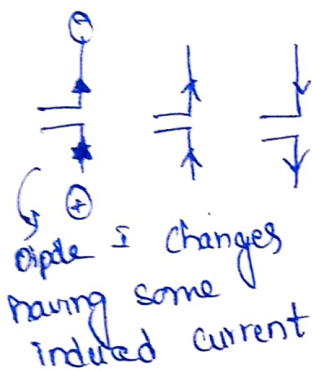 ⊖
⊕
Dipole I changes
having some
induced current